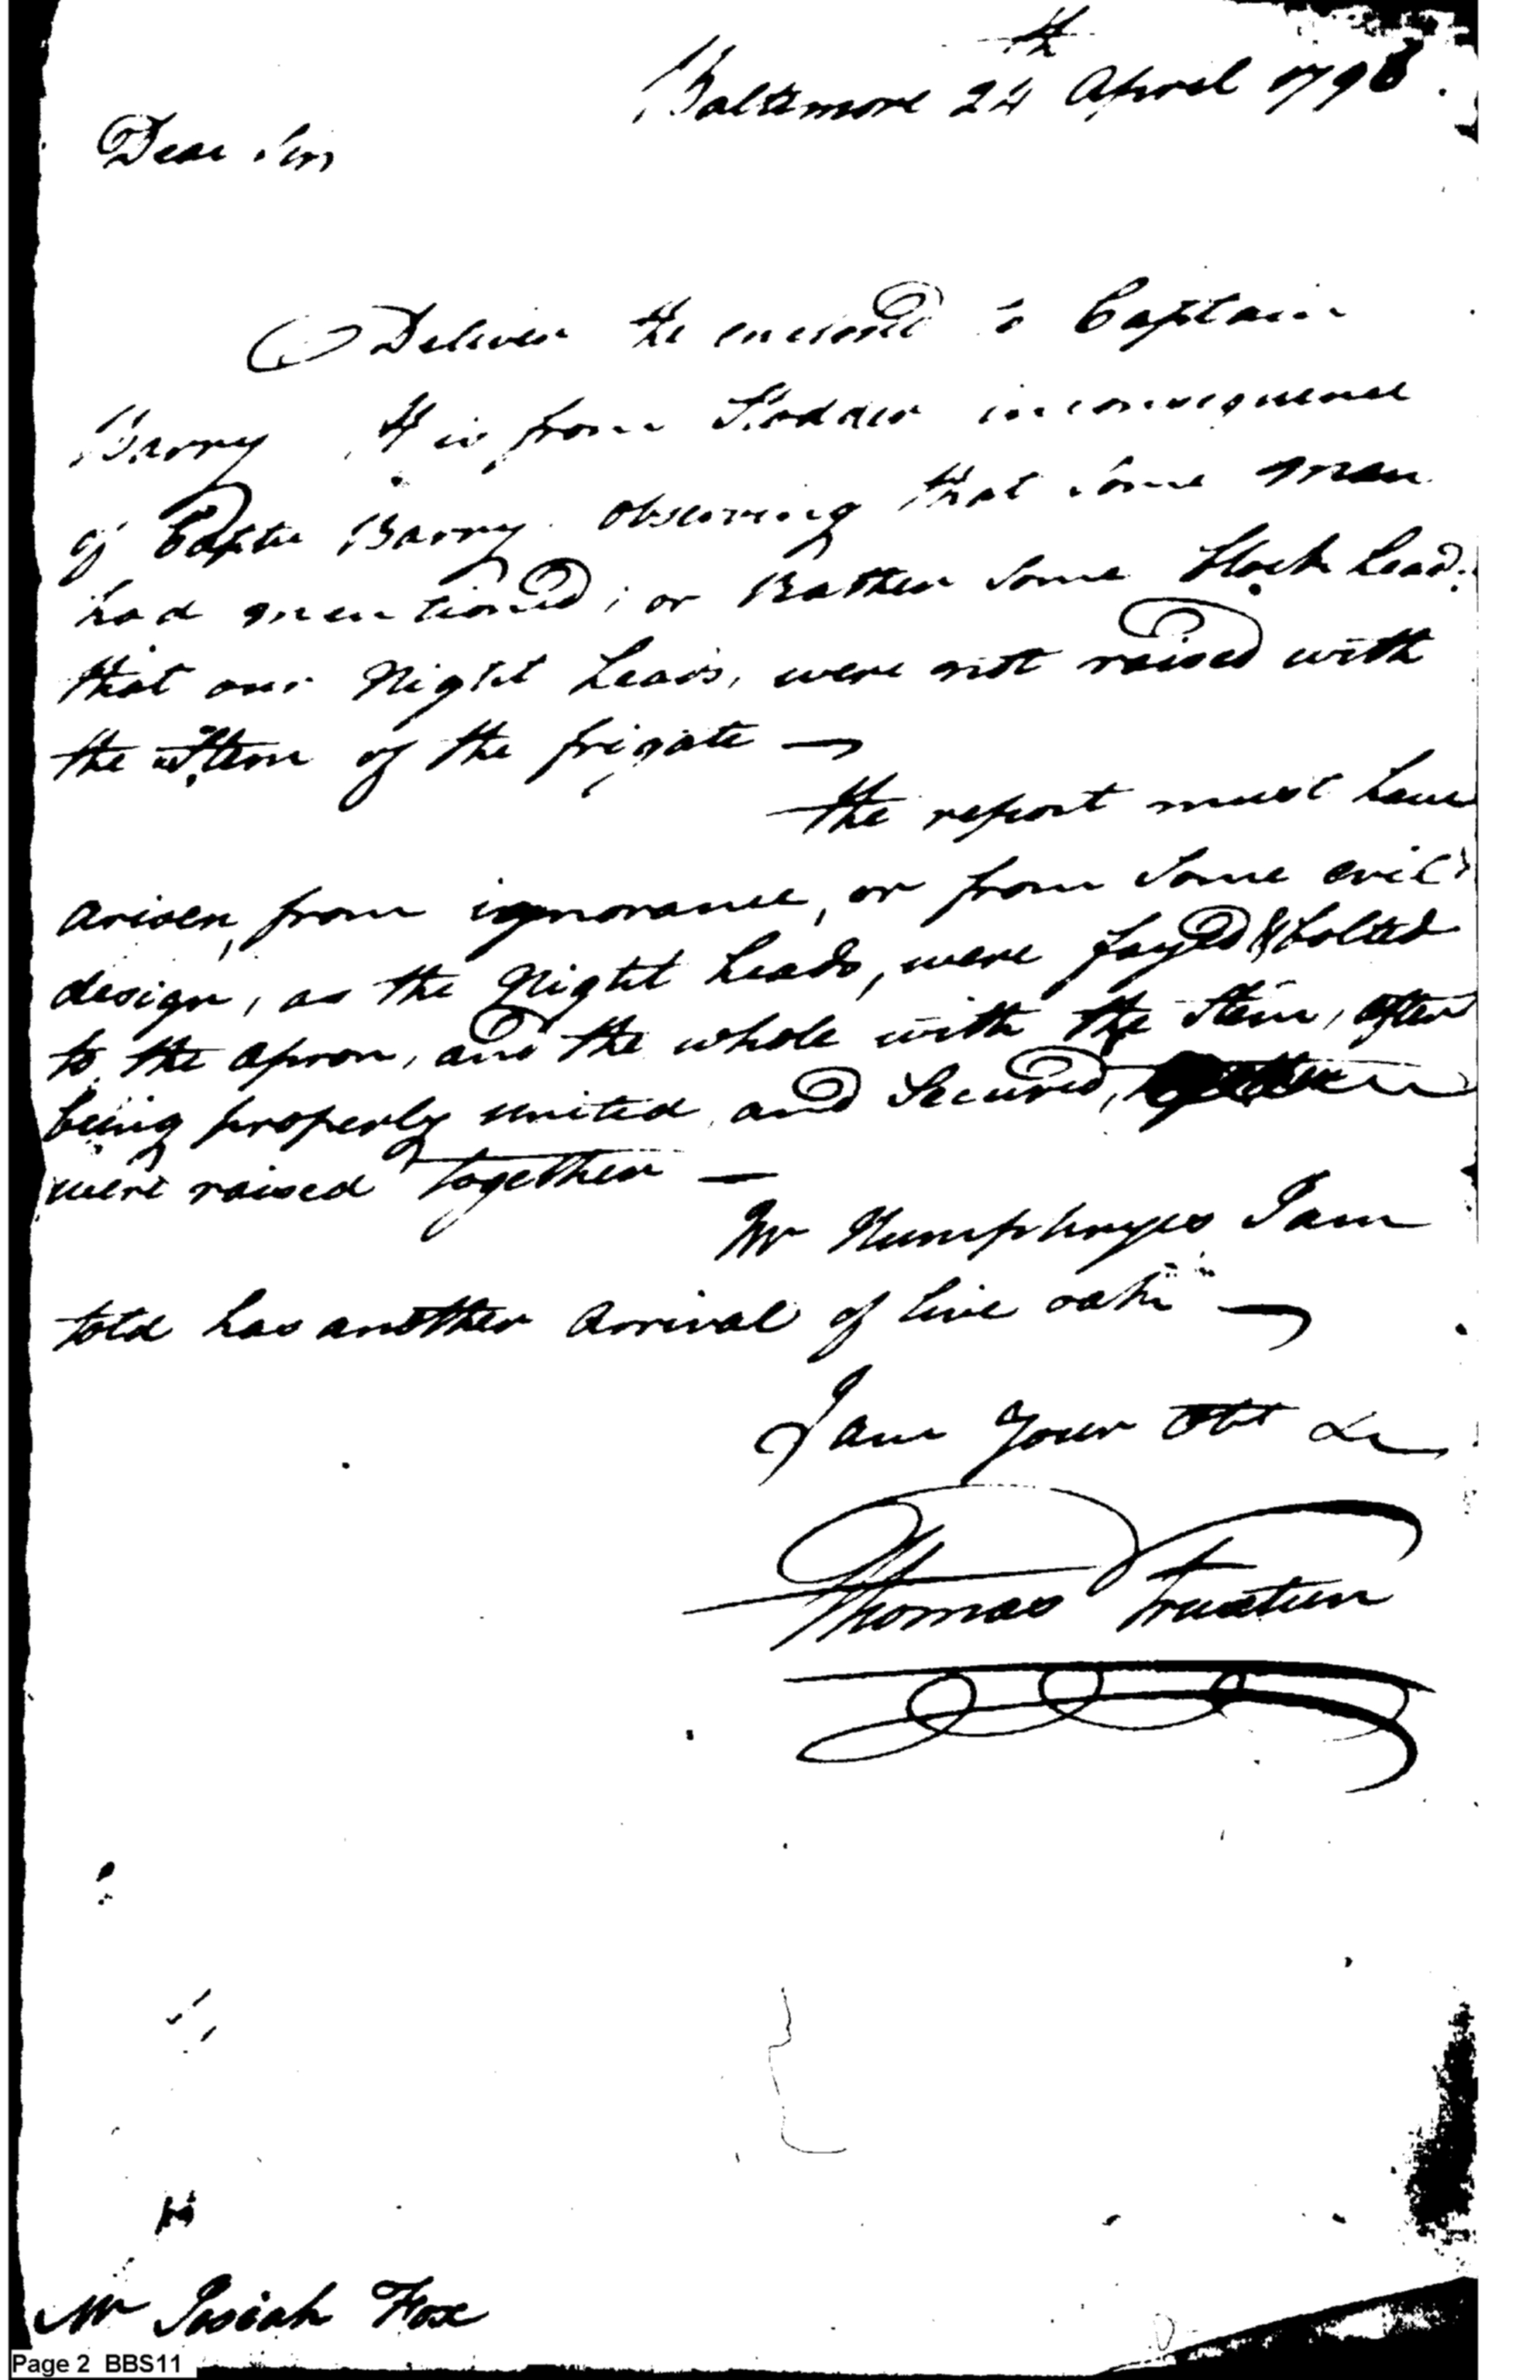 Baltimore 24th April 1796.
Dear Sir
Deliver the enclosed to Captain
Barry It is from Stodder in consequence
of Captn Barry observing that some man
had mentioned, or Rather some block head
that our Night heads, were not raised with
the Stem of the frigate —
the report must have
arisen, from ignorance, or from some evil
design, as the Night heads, were fayed & bolted
to the apron, and the whole with the Stem, after
being properly united and Secured,
were raised together —
Mr Humphreys I am
told has another arrival of live oak —
I am your Obt &c
Thomas Truxtun
Mr Josiah Fox
Page 2 BBS11